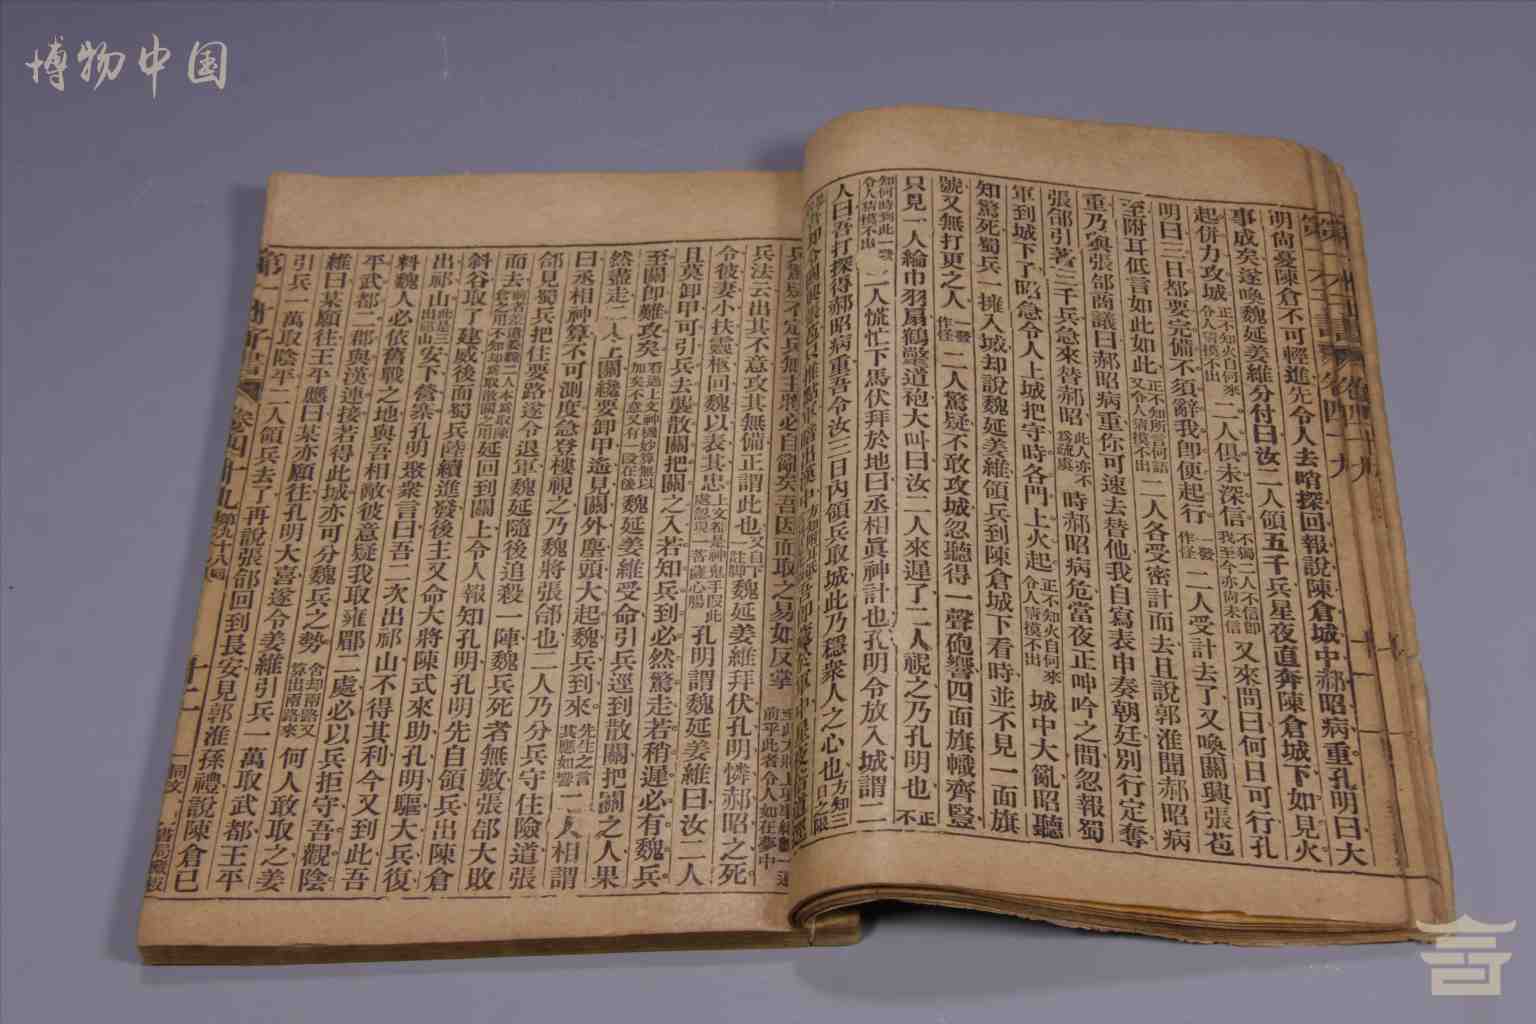 博物中国
明尙憂陳倉不可輕進先令人去哨探回報說陳倉城中郝昭病重孔明曰大
事成矣遂喚魏延姜維分付曰汝二人領五千兵星夜直奔陳倉城下如見火
起併力攻城正不知火自何來令人猜摸不出二人俱未深信不獨二人不信卽我至今亦尙未信又來問曰何日可行孔
明曰三日都要完備不須辭我卽便起行一發作怪二人受計去了又喚關興張苞
至附耳低言如此如此正不知所言何語又令人猜摸不出二人各受密計而去且說郭淮聞郝昭病
重乃與張郃商議曰郝昭病重你可速去替他我自寫表申奏朝廷別行定奪
張郃引著三千兵急來替郝昭此人亦不爲疏虞時郝昭病危當夜正呻吟之間忽報蜀
軍到城下了昭急令人上城把守時各門上火起正不知火自何來令人猜摸不出城中大亂昭聽
知驚死蜀兵一擁入城却說魏延姜維領兵到陳倉城下看時並不見一面旗
號又無打更之人一發作怪二人驚疑不敢攻城忽聽得一聲砲響四面旗幟齊豎
只見一人綸巾羽扇鶴氅道袍大叫曰汝二人來遲了二人視之乃孔明也正不
知何時到此一發令人猜摸不出二人慌忙下馬伏拜於地曰丞相眞神計也孔明令放入城謂二
人曰吾打探得郝昭病重吾令汝三日內領兵取城此乃穩衆人之心也方知三日之限
兵法云出其不意攻其無備正謂此也又自下註脚魏延姜維拜伏孔明憐郝昭之死
令彼妻小扶靈柩回魏以表其忠上文都是神鬼手段此處忽現一菩薩心腸孔明謂魏延姜維曰汝二人
且莫卸甲可引兵去襲散關把關之人若知兵到必然驚走若稍遲必有魏兵
至關卽難攻矣看過上文神機妙算無以加矣不意又有一段在後魏延姜維受命引兵逕到散關把關之人果
然盡走二人上關纔要卸甲遙見關外塵頭大起魏兵到來先生之言其應如響二人相謂
曰丞相神算不可測度急登樓視之乃魏將張郃也二人乃分兵守住險道張
郃見蜀兵把住要路遂令退軍魏延隨後追殺一陣魏兵死者無數張郃大敗
而去延回到關上令人報知孔明孔明先自領兵出陳倉
斜谷取了建威後面蜀兵陸續進發後主又命大將陳式來助孔明驅大兵復
出祁山此是三出祁山安下營寨孔明聚衆言曰吾二次出祁山不得其利今又到此吾
料魏人必依舊戰之地與吾相敵彼意疑我取雍郿二處必以兵拒守吾觀陰
平武都二郡與漢連接若得此城亦可分魏兵之勢舍却兩路又算出兩路來何人敢取之姜
維曰某願往王平應曰某亦願往孔明大喜遂令姜維引兵一萬取武都王平
引兵一萬取陰平二人領兵去了再說張郃回到長安見郭淮孫禮說陳倉已
第一才子書 卷四十九 第九十八回 十二